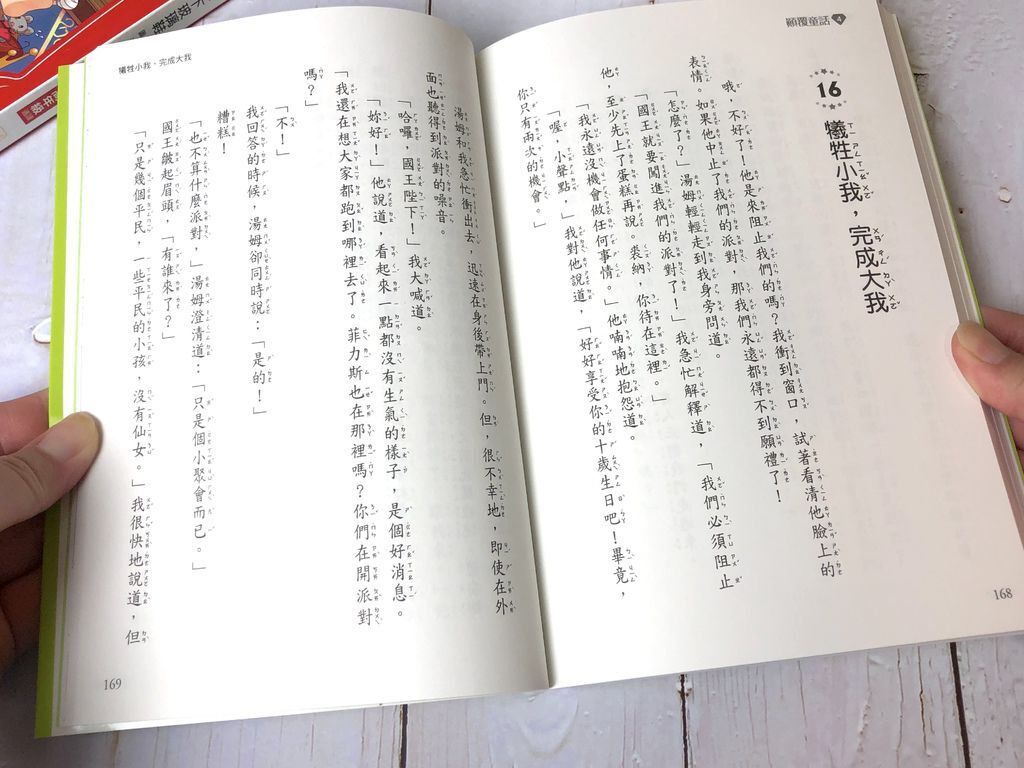 顛覆童話 4
16
犧牲小我，完成大我
哦，不好了！他是來阻止我們的嗎？我衝到窗口，試著看清他臉上的
表情。如果他中止了我們的派對，那我們永遠都得不到願禮了！
「怎麼了？」湯姆輕輕走到我身旁問道。
「國王就要闖進我們的派對了！」我急忙解釋道，「我們必須阻止
他，至少先上了蛋糕再說。裘納，你待在這裡。」
「我永遠沒機會做任何事情。」他喃喃地抱怨道。
「喔，小聲點，」我對他說道，「好好享受你的十歲生日吧！畢竟，
你只有兩次的機會。」
168
犧牲小我，完成大我
湯姆和我急忙衝出去，迅速在身後帶上門。但，很不幸地，即使在外
面也聽得到派對的噪音。
「哈囉，國王陛下！」我大喊道。
「妳好！」他說道，看起來一點都沒有生氣的樣子，是個好消息。
「我還在想大家都跑到哪裡去了。菲力斯也在那裡嗎？你們在開派對
嗎？」
「不！」
我回答的時候，湯姆卻同時說：「是的！」
糟糕！
「也不算什麼派對，」湯姆澄清道：「只是個小聚會而已。」
國王皺起眉頭，「有誰來了？」
「只是幾個平民，一些平民的小孩，沒有仙女。」我很快地說道，但
169